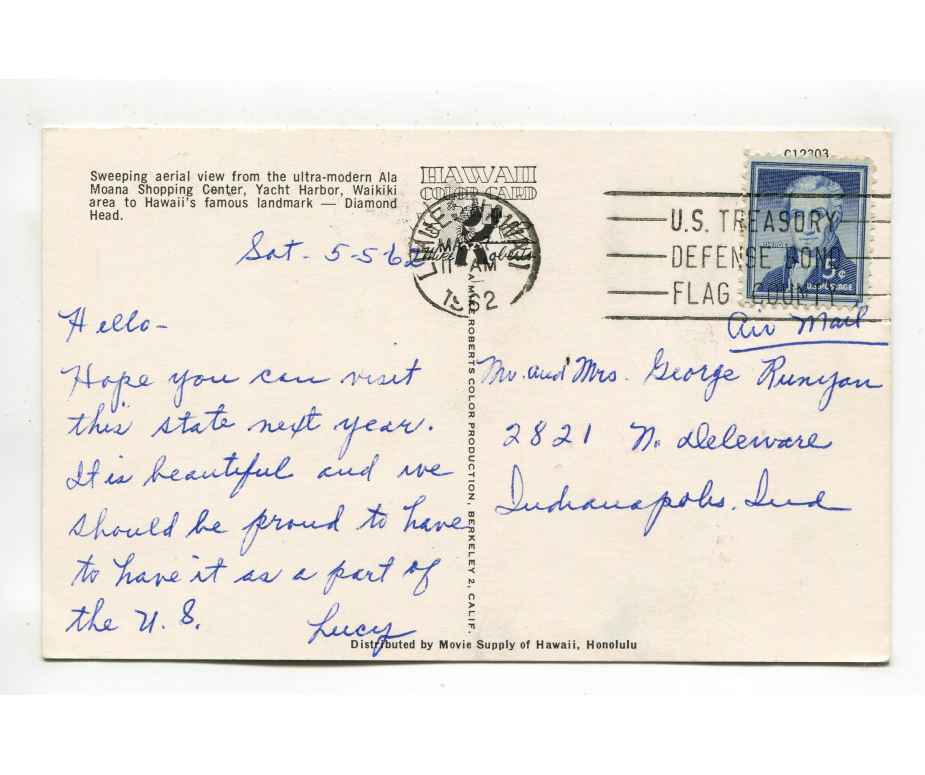 Sweeping aerial view from the ultra-modern Ala
Moana Shopping Center, Yacht Harbor, Waikiki
area to Hawaii's famous landmark — Diamond
Head.
HAWAII
COLOR CARD
Mike Roberts
C12303
LIHUE, HAWAII
MAY
11 AM
1962
U.S. TREASURY
DEFENSE BOND
FLAG COUNTY
5¢
U.S. POSTAGE
Sat - 5-5-62
Hello-
Hope you can visit
this state next year.
It is beautiful and we
should be proud to have
to have it as a part of
the U.S.
Lucy
A MIKE ROBERTS COLOR PRODUCTION, BERKELEY 2, CALIF.
Air Mail
Mr. and Mrs. George Runyan
2821 N. Deleware
Indianapolis, Ind
Distributed by Movie Supply of Hawaii, Honolulu